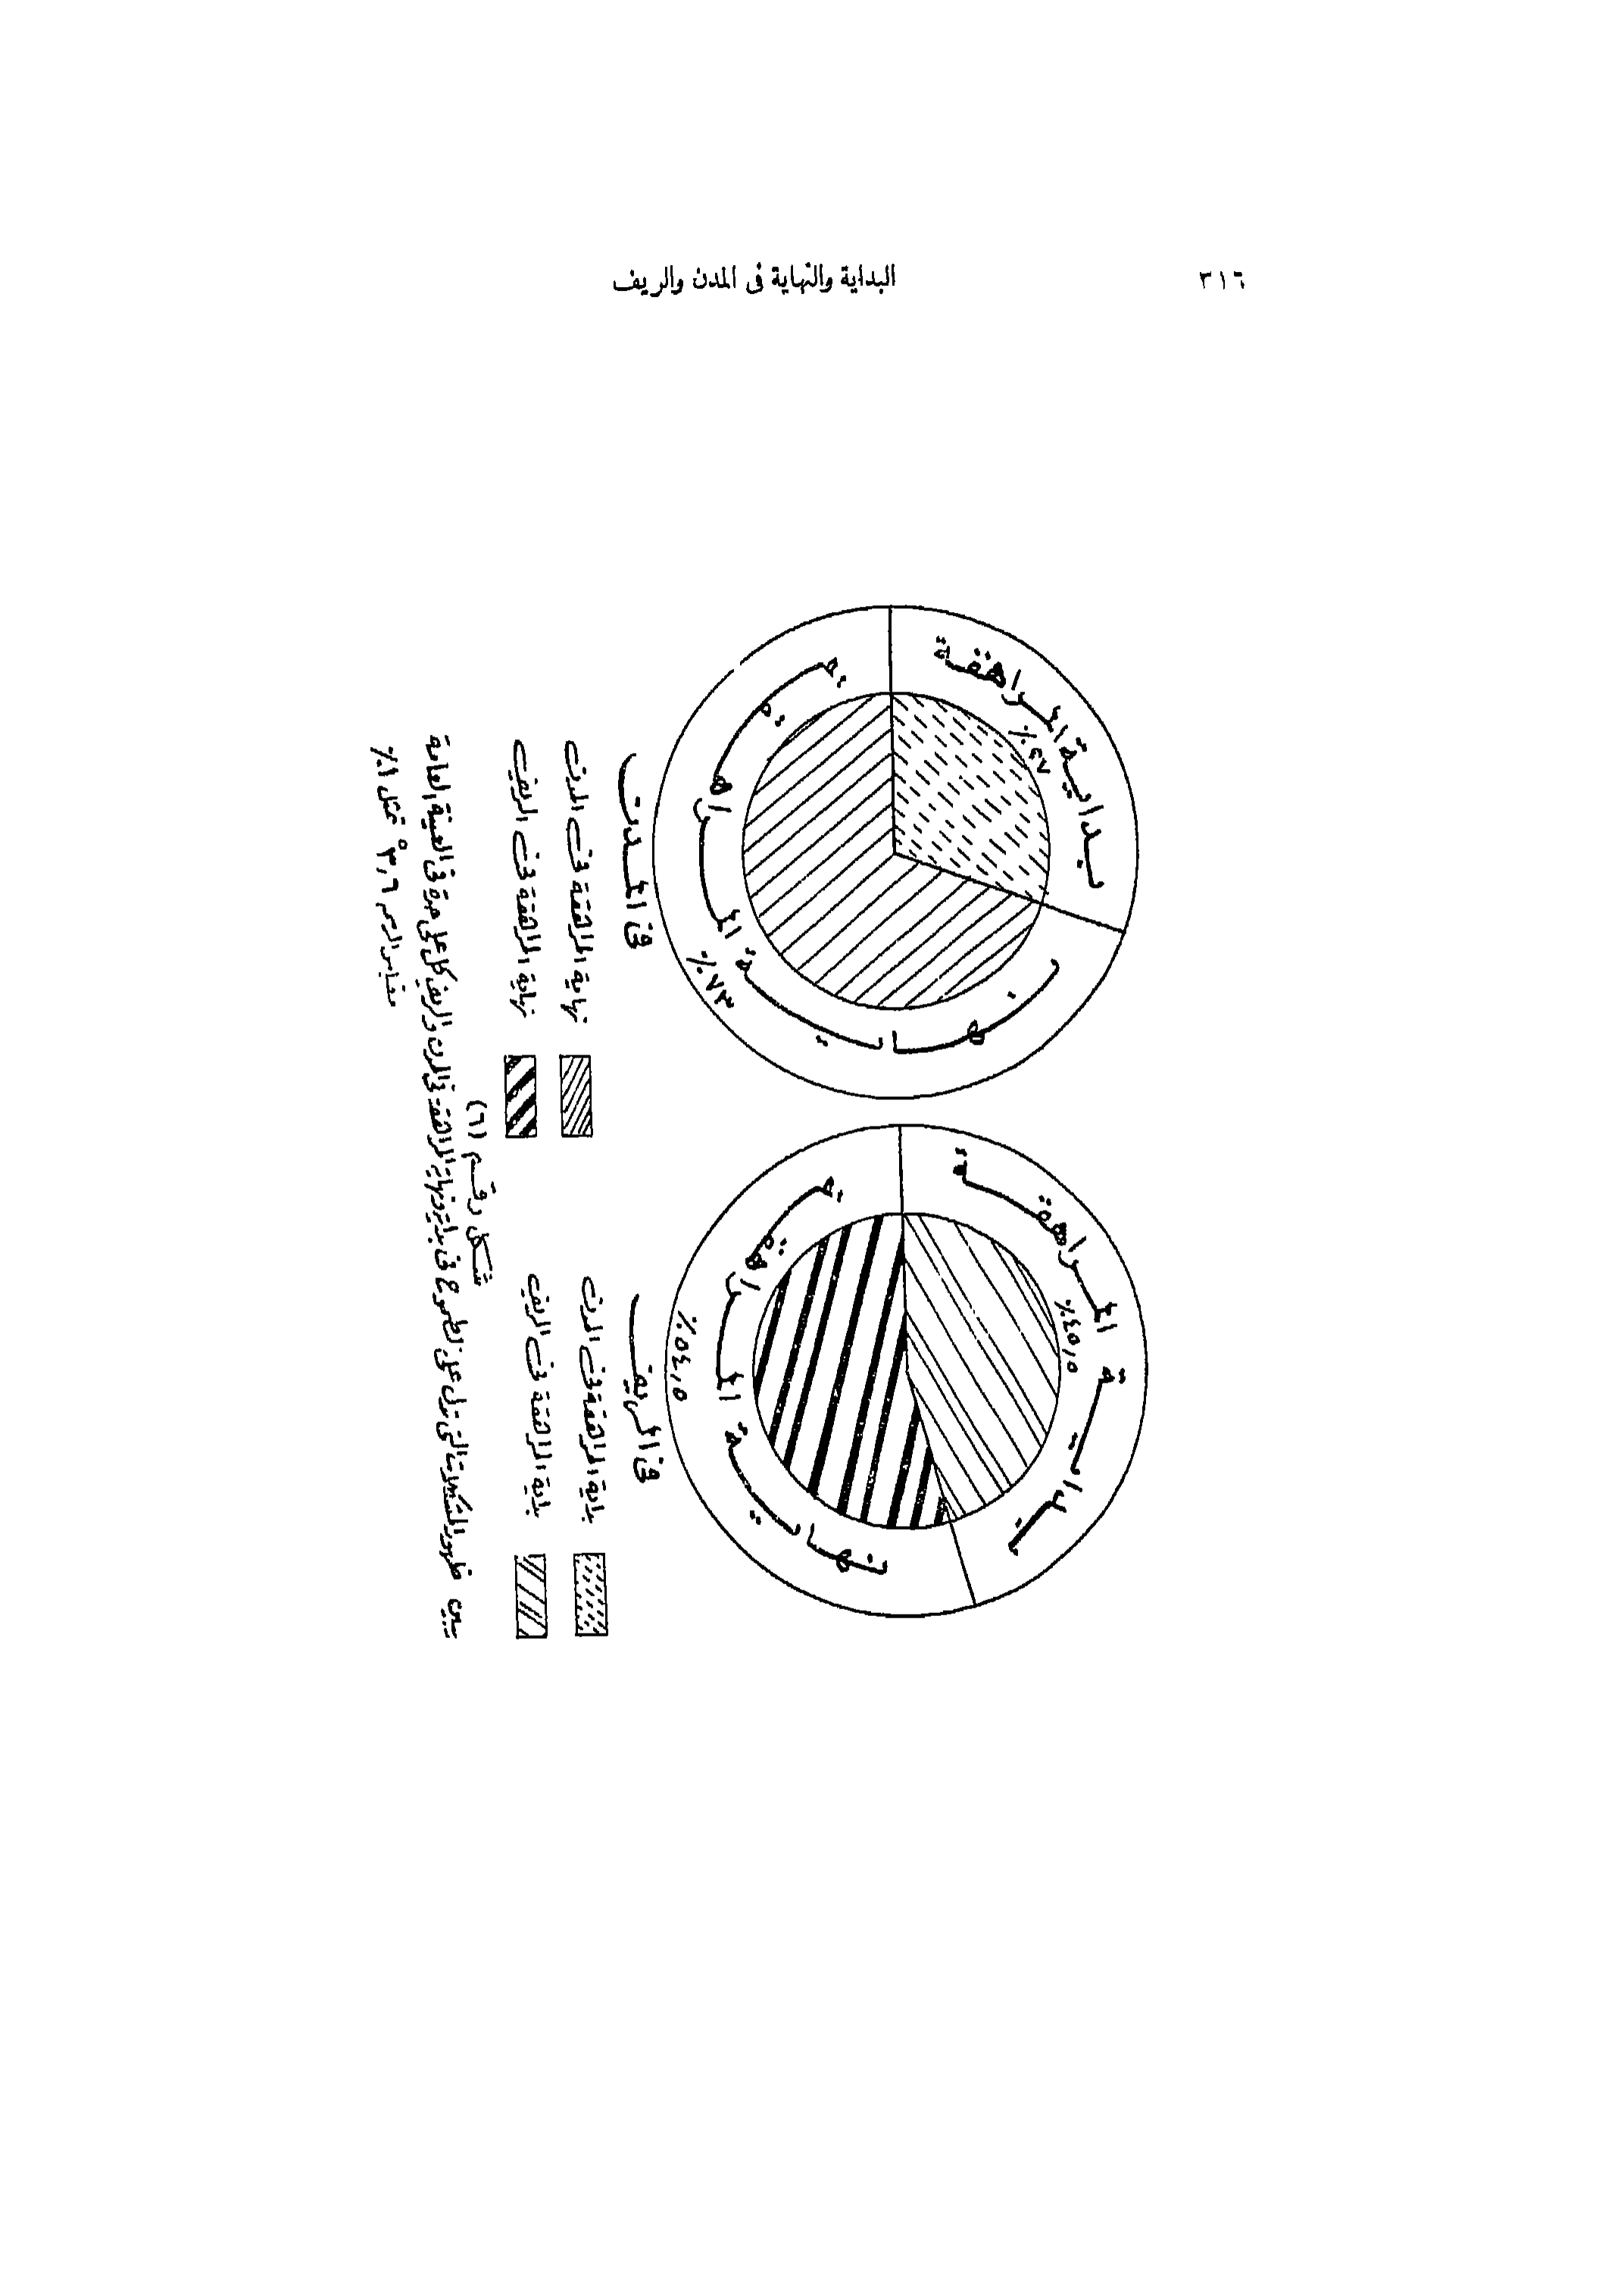 ٣١٦
البداية والنهاية فى المدن والريف
بداية المراهقة
٪٢٧
نهاية المراهقة
٪٧٣
فى المدن
بداية المراهقة
٪٤٥,٥
نهاية المراهقة
٪٥٤,٥
فى الريف
نهاية المراهقة فى المدن
بداية المراهقة فى المدن
نهاية المراهقة فى الريف
بداية المراهقة فى الريف
شكل رقم (٦)
يبين ظهور المشكلات التى تدل على الطموح فى بداية ونهاية المراهقة فى المدن والريف كل على حدة فى العينة العامة
مقياس الرسم ٣,٦° تمثل ١٪